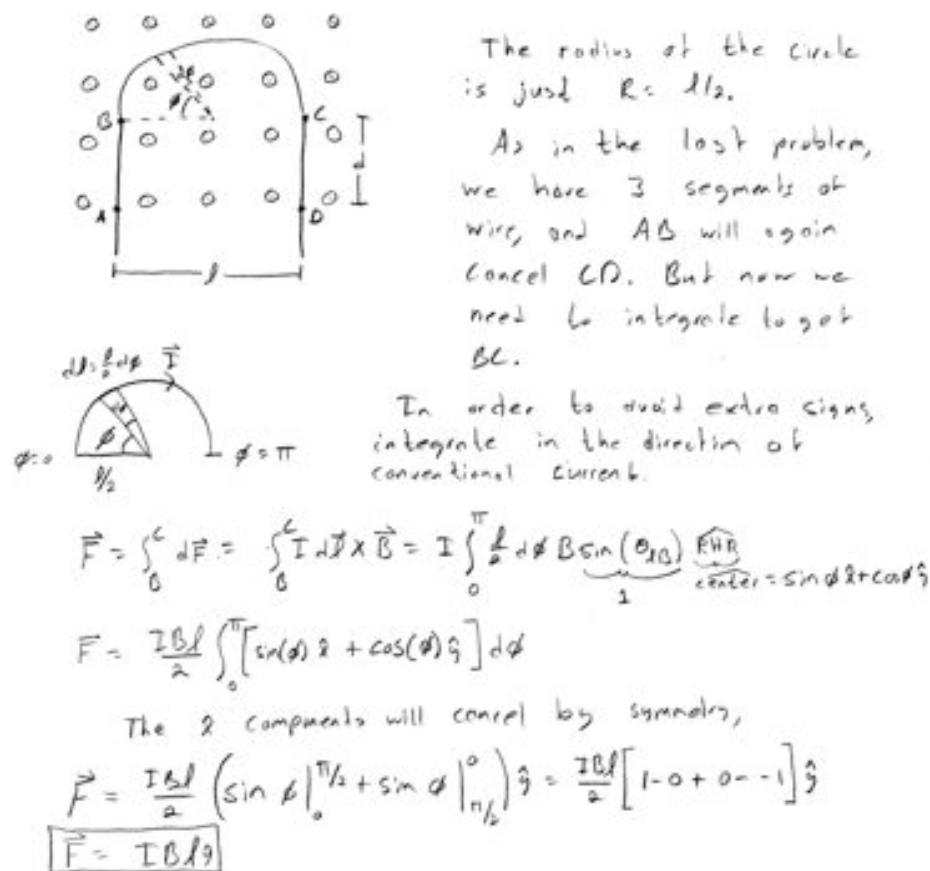 The radius of the circle
is just R = l/2.
As in the last problem,
we have 3 segments of
wire, and AB will again
cancel CD. But now we
need to integrate to get
BC.
B
C
A
D
d
l
dϕ
ϕ
dl = l/2 dϕ I⃗
ϕ = 0
ϕ
l/2
ϕ = π
In order to avoid extra signs,
integrate in the direction of
conventional current.
F⃗ = ∫_B^C dF⃗ = ∫_B^C I dl⃗ × B⃗ = I ∫_0^π l/2 dϕ B sin(θ_lB) RHR
1
center = sinϕ x̂ + cosϕ ŷ
F⃗ = IBl/2 ∫_0^π [sin(ϕ) x̂ + cos(ϕ) ŷ] dϕ
The x̂ components will cancel by symmetry,
F⃗ = IBl/2 (sin ϕ |_0^π/2 + sin ϕ |_π/2^0) ŷ = IBl/2 [1-0+0--1] ŷ
F⃗ = IBl ŷ